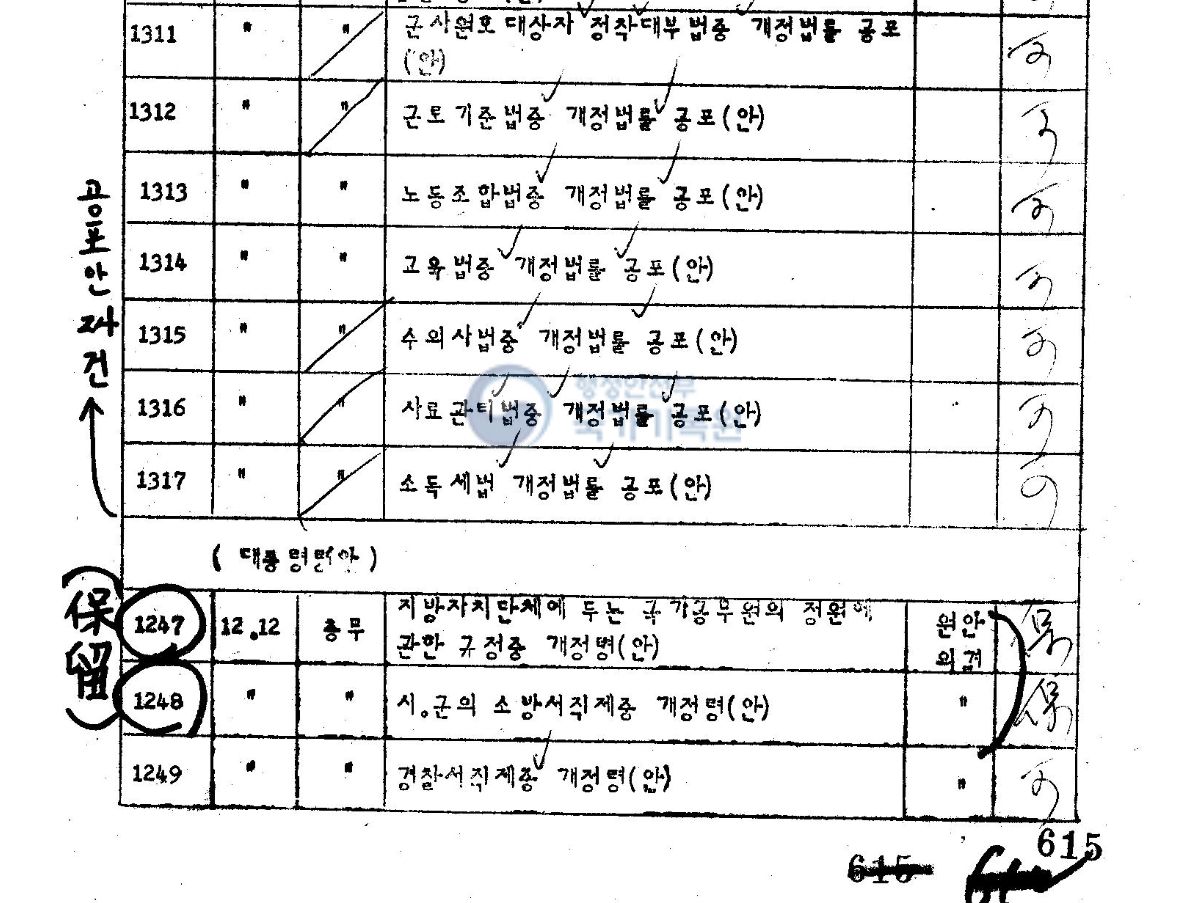 1311 〃 〃 군사원호대상자 정착대부법중 개정법률 공포
(안)
1312 〃 〃 근로기준법중 개정법률 공포(안)
1313 〃 〃 노동조합법중 개정법률 공포(안)
1314 〃 〃 교육법중 개정법률 공포(안)
1315 〃 〃 수의사법중 개정법률 공포(안)
1316 〃 〃 사료관리법중 개정법률 공포(안)
1317 〃 〃 소득세법 개정법률 공포(안)
공포안 24건
행정안전부
국가기록원
(대통령령안)
(保留)
1247 12.12 총무 지방자치단체에 두는 국가공무원의 정원에 원안
관한 규정중 개정령(안) 의결 保
1248 〃 〃 시。군의 소방서직제중 개정령(안) 〃 保
1249 〃 〃 경찰서직제중 개정령(안) 〃
615
615